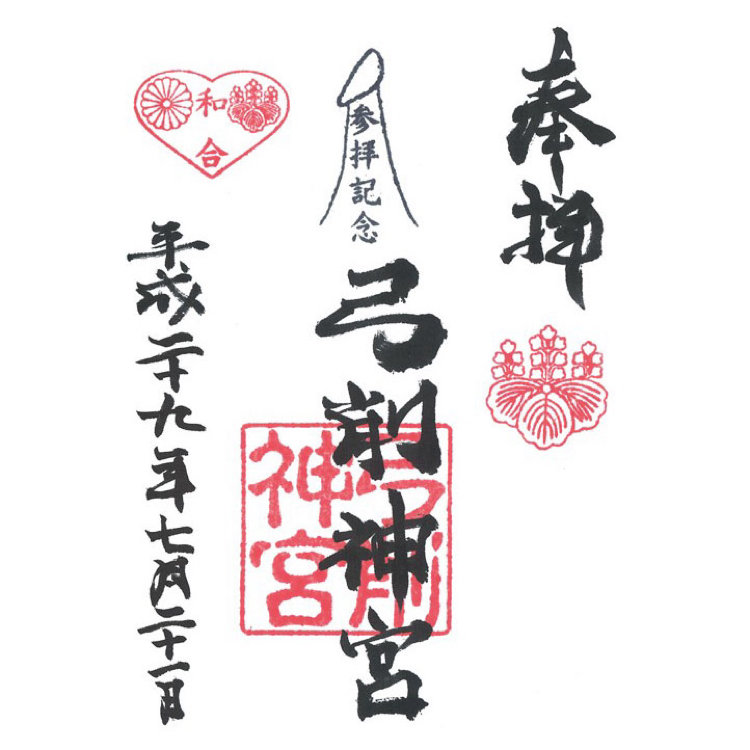 奉拝
参拝記念
弓削神宮
弓削
神宮
和合
平成二十九年七月二十一日